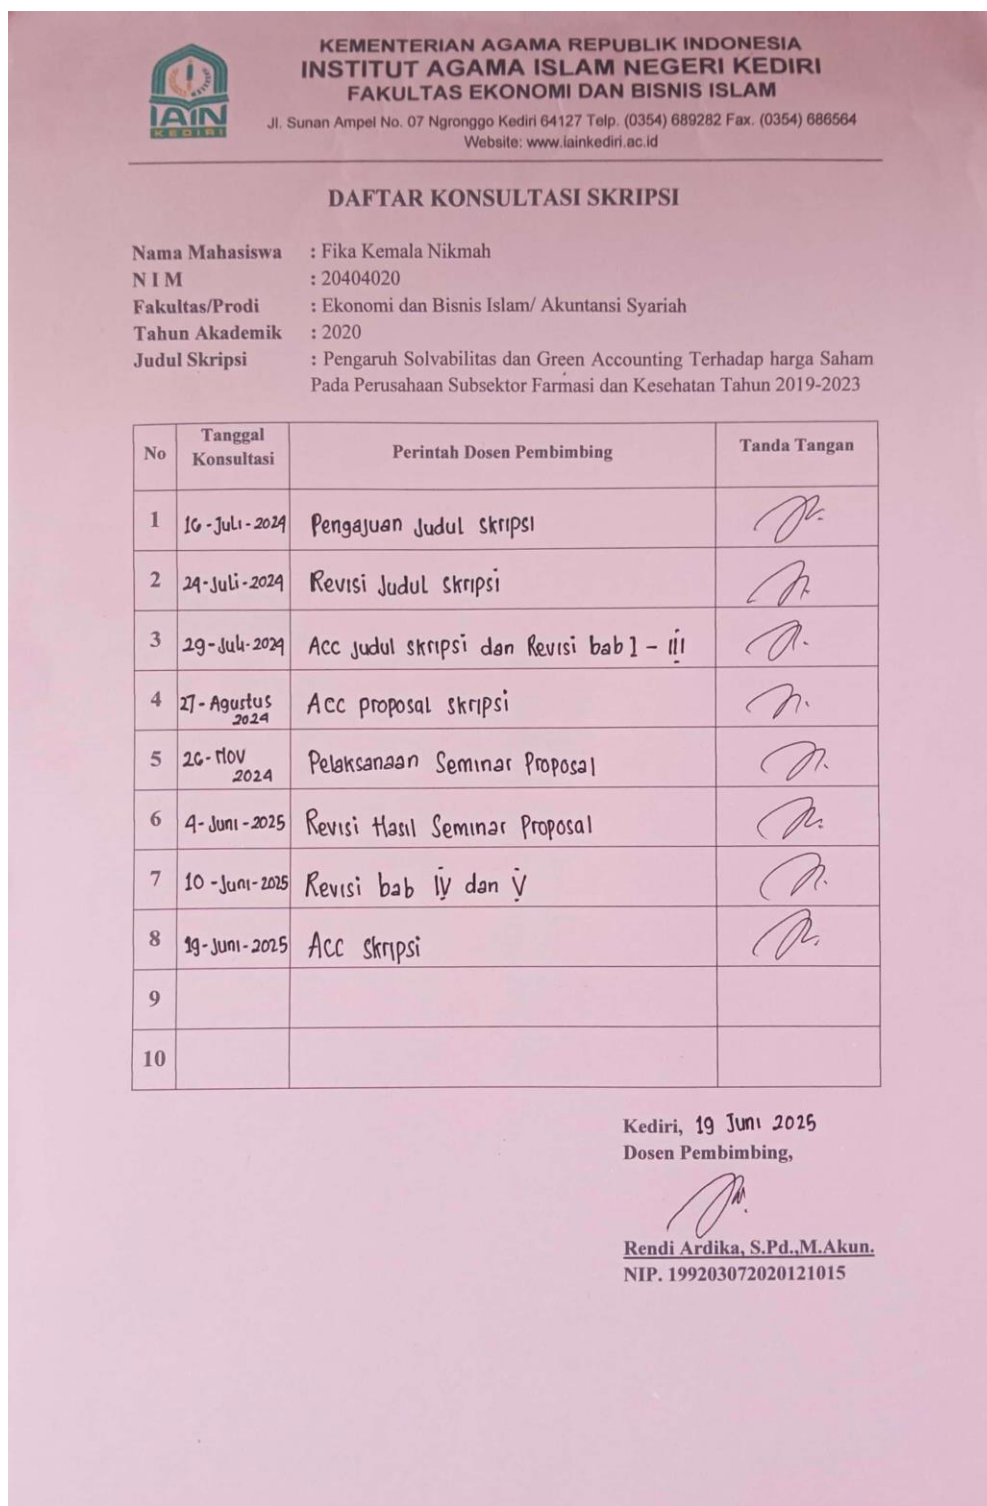 KEMENTERIAN AGAMA REPUBLIK INDONESIA
INSTITUT AGAMA ISLAM NEGERI KEDIRI
FAKULTAS EKONOMI DAN BISNIS ISLAM
Jl. Sunan Ampel No. 07 Ngronggo Kediri 64127 Telp. (0354) 689282 Fax. (0354) 686564
Website: www.iainkediri.ac.id
IAIN
KEDIRI
DAFTAR KONSULTASI SKRIPSI
Nama Mahasiswa : Fika Kemala Nikmah
N I M : 20404020
Fakultas/Prodi : Ekonomi dan Bisnis Islam/ Akuntansi Syariah
Tahun Akademik : 2020
Judul Skripsi : Pengaruh Solvabilitas dan Green Accounting Terhadap harga Saham
Pada Perusahaan Subsektor Farmasi dan Kesehatan Tahun 2019-2023
No Tanggal Konsultasi Perintah Dosen Pembimbing Tanda Tangan
1 16-Juli-2024 Pengajuan Judul skripsi
2 24-Juli-2024 Revisi Judul skripsi
3 29-Juli-2024 Acc Judul skripsi dan Revisi bab I - III
4 27-Agustus 2024 Acc proposal skripsi
5 26-Nov 2024 Pelaksanaan Seminar Proposal
6 4-Juni-2025 Revisi Hasil Seminar Proposal
7 10-Juni-2025 Revisi bab IV dan V
8 19-Juni-2025 Acc skripsi
9
10
Kediri, 19 Juni 2025
Dosen Pembimbing,
Rendi Ardika, S.Pd.,M.Akun.
NIP. 199203072020121015